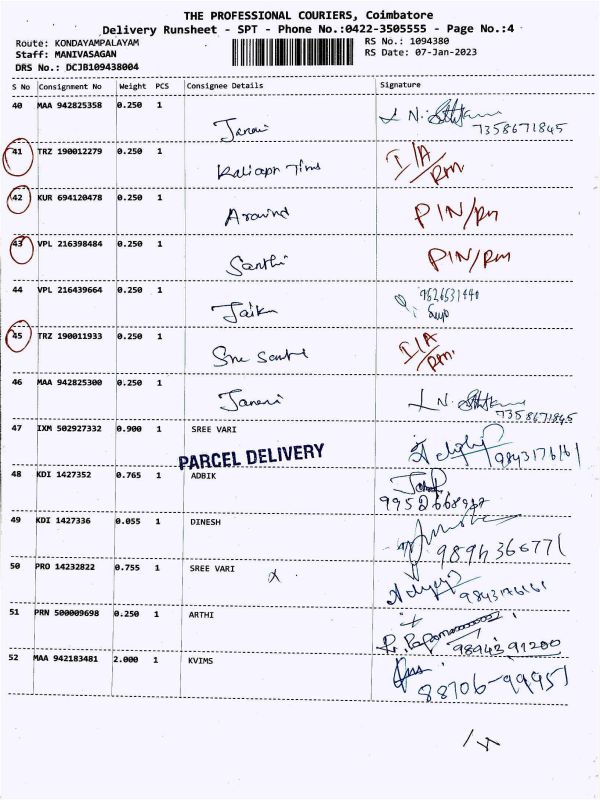 THE PROFESSIONAL COURIERS, Coimbatore
Delivery Runsheet - SPT - Phone No.:0422-3505555 - Page No.:4
Route: KONDAYAMPALAYAM RS No.: 1094380
Staff: MANIVASAGAN RS Date: 07-Jan-2023
DRS No.: DCJB109438004
S No Consignment No Weight PCS Consignee Details Signature
40 MAA 942825358 0.250 1
7358671845
41 TRZ 190012279 0.250 1 I/A
42 KUR 694120478 0.250 1 Aravind PIN/RM
43 VPL 216398484 0.250 1 Santhi PIN/RM
44 VPL 216439664 0.250 1
45 TRZ 190011933 0.250 1 I/A
46 MAA 942825300 0.250 1
7358671845
47 IXM 502927332 0.900 1 SREE VARI
9843176161
PARCEL DELIVERY
48 KDI 1427352 0.765 1 ADBIK
49 KDI 1427336 0.055 1 DINESH
50 PRO 14232822 0.755 1 SREE VARI
9843176161
51 PRN 500009698 0.250 1 ARTHI
9894391200
52 MAA 942183481 2.000 1 KVIMS
88706-99957